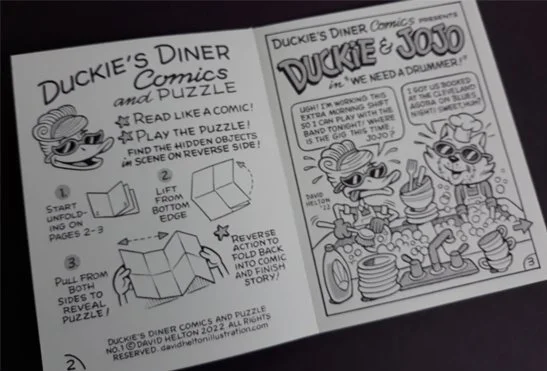 DUCKIE'S DINER
Comics
and PUZZLE
READ LIKE A COMIC!
PLAY THE PUZZLE!
FIND THE HIDDEN OBJECTS
in SCENE ON REVERSE SIDE!
1
START
UNFOLD-
ING ON
PAGES 2-3
2
LIFT
FROM
BOTTOM
EDGE
3
PULL FROM
BOTH
SIDES TO
REVEAL
PUZZLE!
REVERSE
ACTION TO
FOLD BACK
INTO COMIC
AND FINISH
STORY!
DUCKIE'S DINER COMICS AND PUZZLE
NO. 1 © DAVID HELTON 2022 ALL RIGHTS
RESERVED. davidheltonillustration.com
2
DUCKIE'S DINER Comics PRESENTS
DUCKIE & JOJO
in "WE NEED A DRUMMER!"
UGH! I'M WORKING THIS
EXTRA MORNING SHIFT
SO I CAN PLAY WITH THE
BAND TONIGHT! WHERE
IS THE GIG THIS TIME,
JOJO?
I GOT US BOOKED
AT THE CLEVELAND
AGORA ON BLUES
NIGHT! SWEET, HUH?
DAVID
HELTON
'22
3